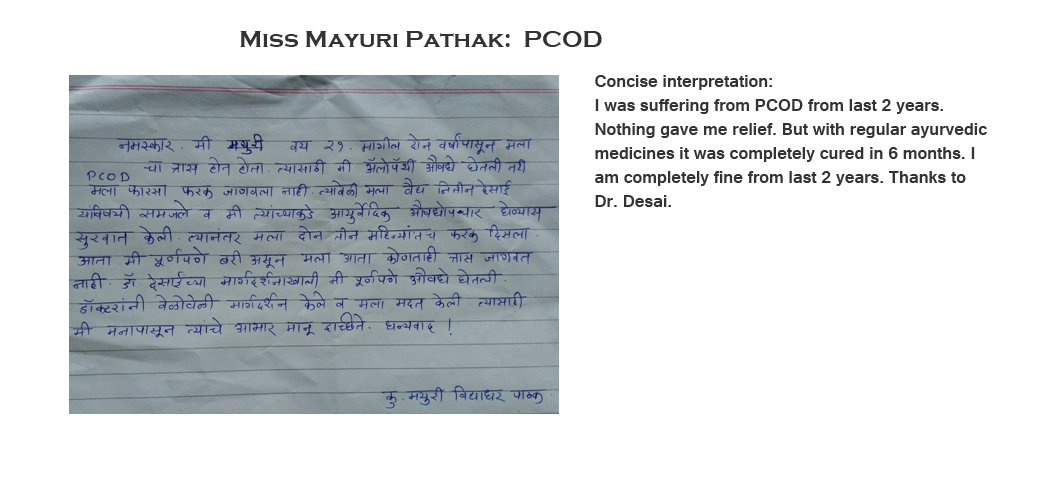 Miss Mayuri Pathak: PCOD
नमस्कार. मी मयुरी वय २१. मागील दोन वर्षांपासून मला
PCOD चा त्रास होत होता. त्यासाठी मी ॲलोपॅथी औषधे घेतली तरी
मला फारसा फरक जाणवला नाही. त्यावेळी मला वैद्य नितीन देसाई
यांविषयी समजले व मी त्यांच्याकडे आयुर्वेदिक औषधोपचार घेण्यास
सुरवात केली. त्यानंतर मला दोन तीन महिन्यांतच फरक दिसला.
आता मी पूर्णपणे बरी असून मला आता कोणताही त्रास जाणवत
नाही. डॉ. देसाईंच्या मार्गदर्शनाखाली मी पूर्णपणे औषधे घेतली.
डॉक्टरांनी वेळोवेळी मार्गदर्शन केले व मला मदत केली. त्यासाठी
मी मनापासून त्यांचे आभार मानू इच्छिते. धन्यवाद !
कु. मयुरी विद्याधर पाठक
Concise interpretation:
I was suffering from PCOD from last 2 years.
Nothing gave me relief. But with regular ayurvedic
medicines it was completely cured in 6 months. I
am completely fine from last 2 years. Thanks to
Dr. Desai.